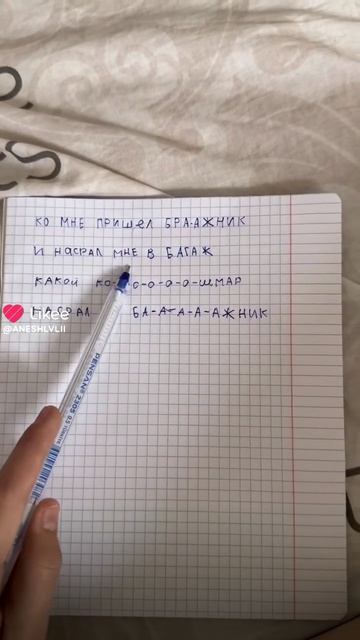 КО МНЕ ПРИШЕЛ БРА-АЖНИК
И НАСРАЛ МНЕ В БАГАЖ
КАКОЙ КО-О-О-О-О-ШМАР
НАСРАЛ БА-А-А-А-АЖНИК
Likee
@ANESHLVLII
PENSAN® 2305 0.5